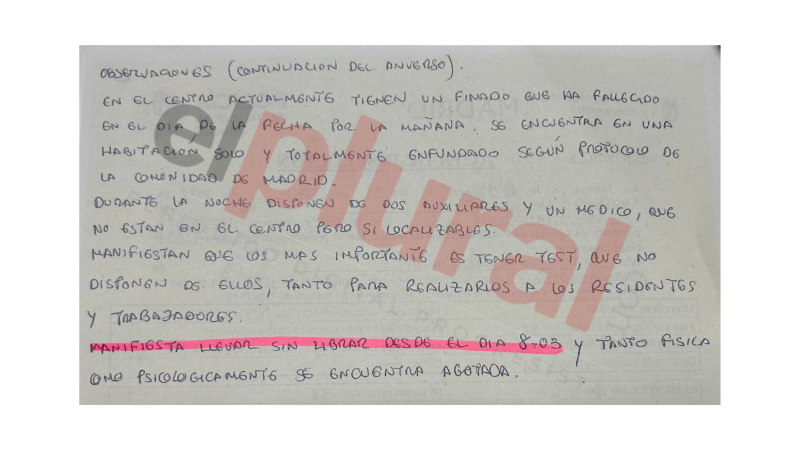 OBSERVACIONES (CONTINUACION DEL ANVERSO).
EN EL CENTRO ACTUALMENTE TIENEN UN FINADO QUE HA FALLECIDO
EN EL DIA DE LA FECHA POR LA MAÑANA. SE ENCUENTRA EN UNA
HABITACIÓN SOLO Y TOTALMENTE ENFUNDADO SEGÚN PROTOCOLO DE
LA COMUNIDAD DE MADRID.
DURANTE LA NOCHE DISPONEN DE DOS AUXILIARES Y UN MEDICO, QUE
NO ESTAN EN EL CENTRO PERO SI LOCALIZABLES.
MANIFIESTAN QUE LOS MAS IMPORTANTE ES TENER TEST, QUE NO
DISPONEN DE ELLOS, TANTO PARA REALIZARLOS A LOS RESIDENTES
Y TRABAJADORES.
MANIFIESTA LLEVAR SIN LIBRAR DESDE EL DIA 8-03 Y TANTO FISICA
OMO PSICOLOGICAMENTE SE ENCUENTRA AGOTADA.
elplural